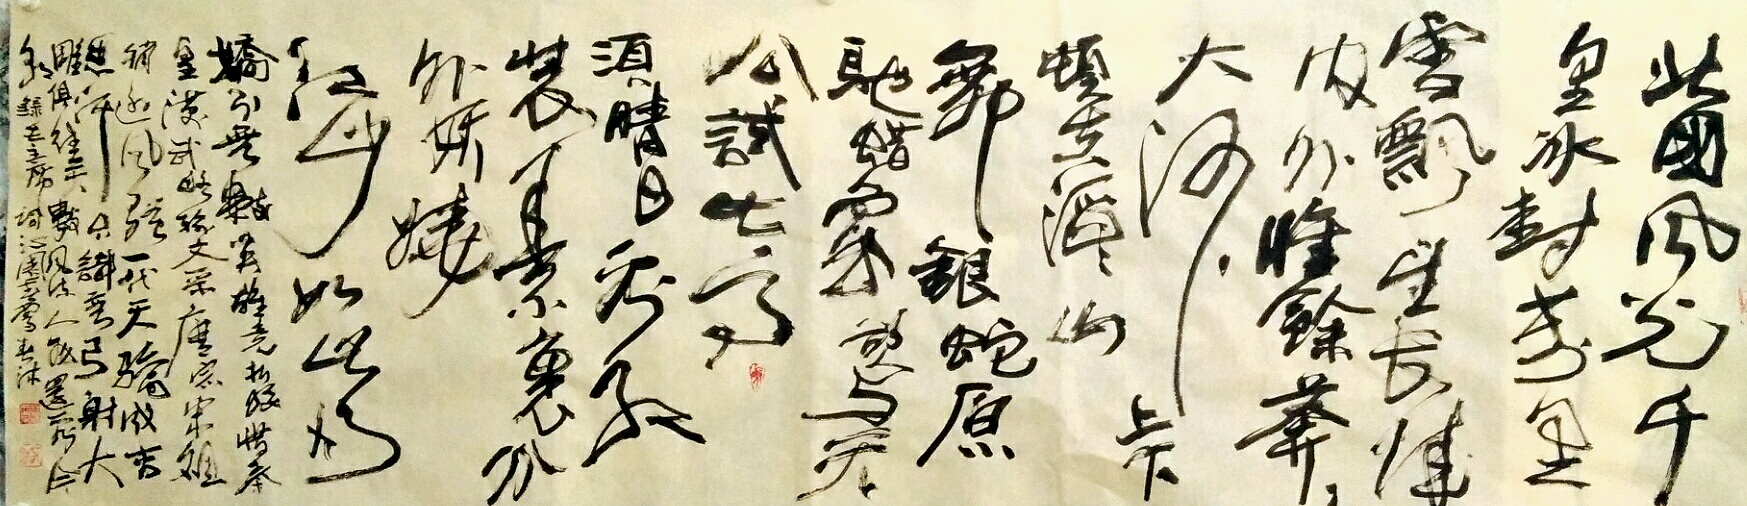 北國風光千
里冰封萬里
雪飄望長城
内外惟餘莽〻
大河上下
頓失滔〻山
舞銀蛇原
馳蜡象欲与天
公試比高
須晴日看紅
裝素裹分
外妖嬈
江山如此多
嬌引無數英雄竞折腰惜秦
皇漢武略输文采唐宗宋祖
稍遜風骚一代天驕成吉
思汗只識弯弓射大
雕俱往矣數風流人物還看今
朝錄毛主席詞沁園春雪